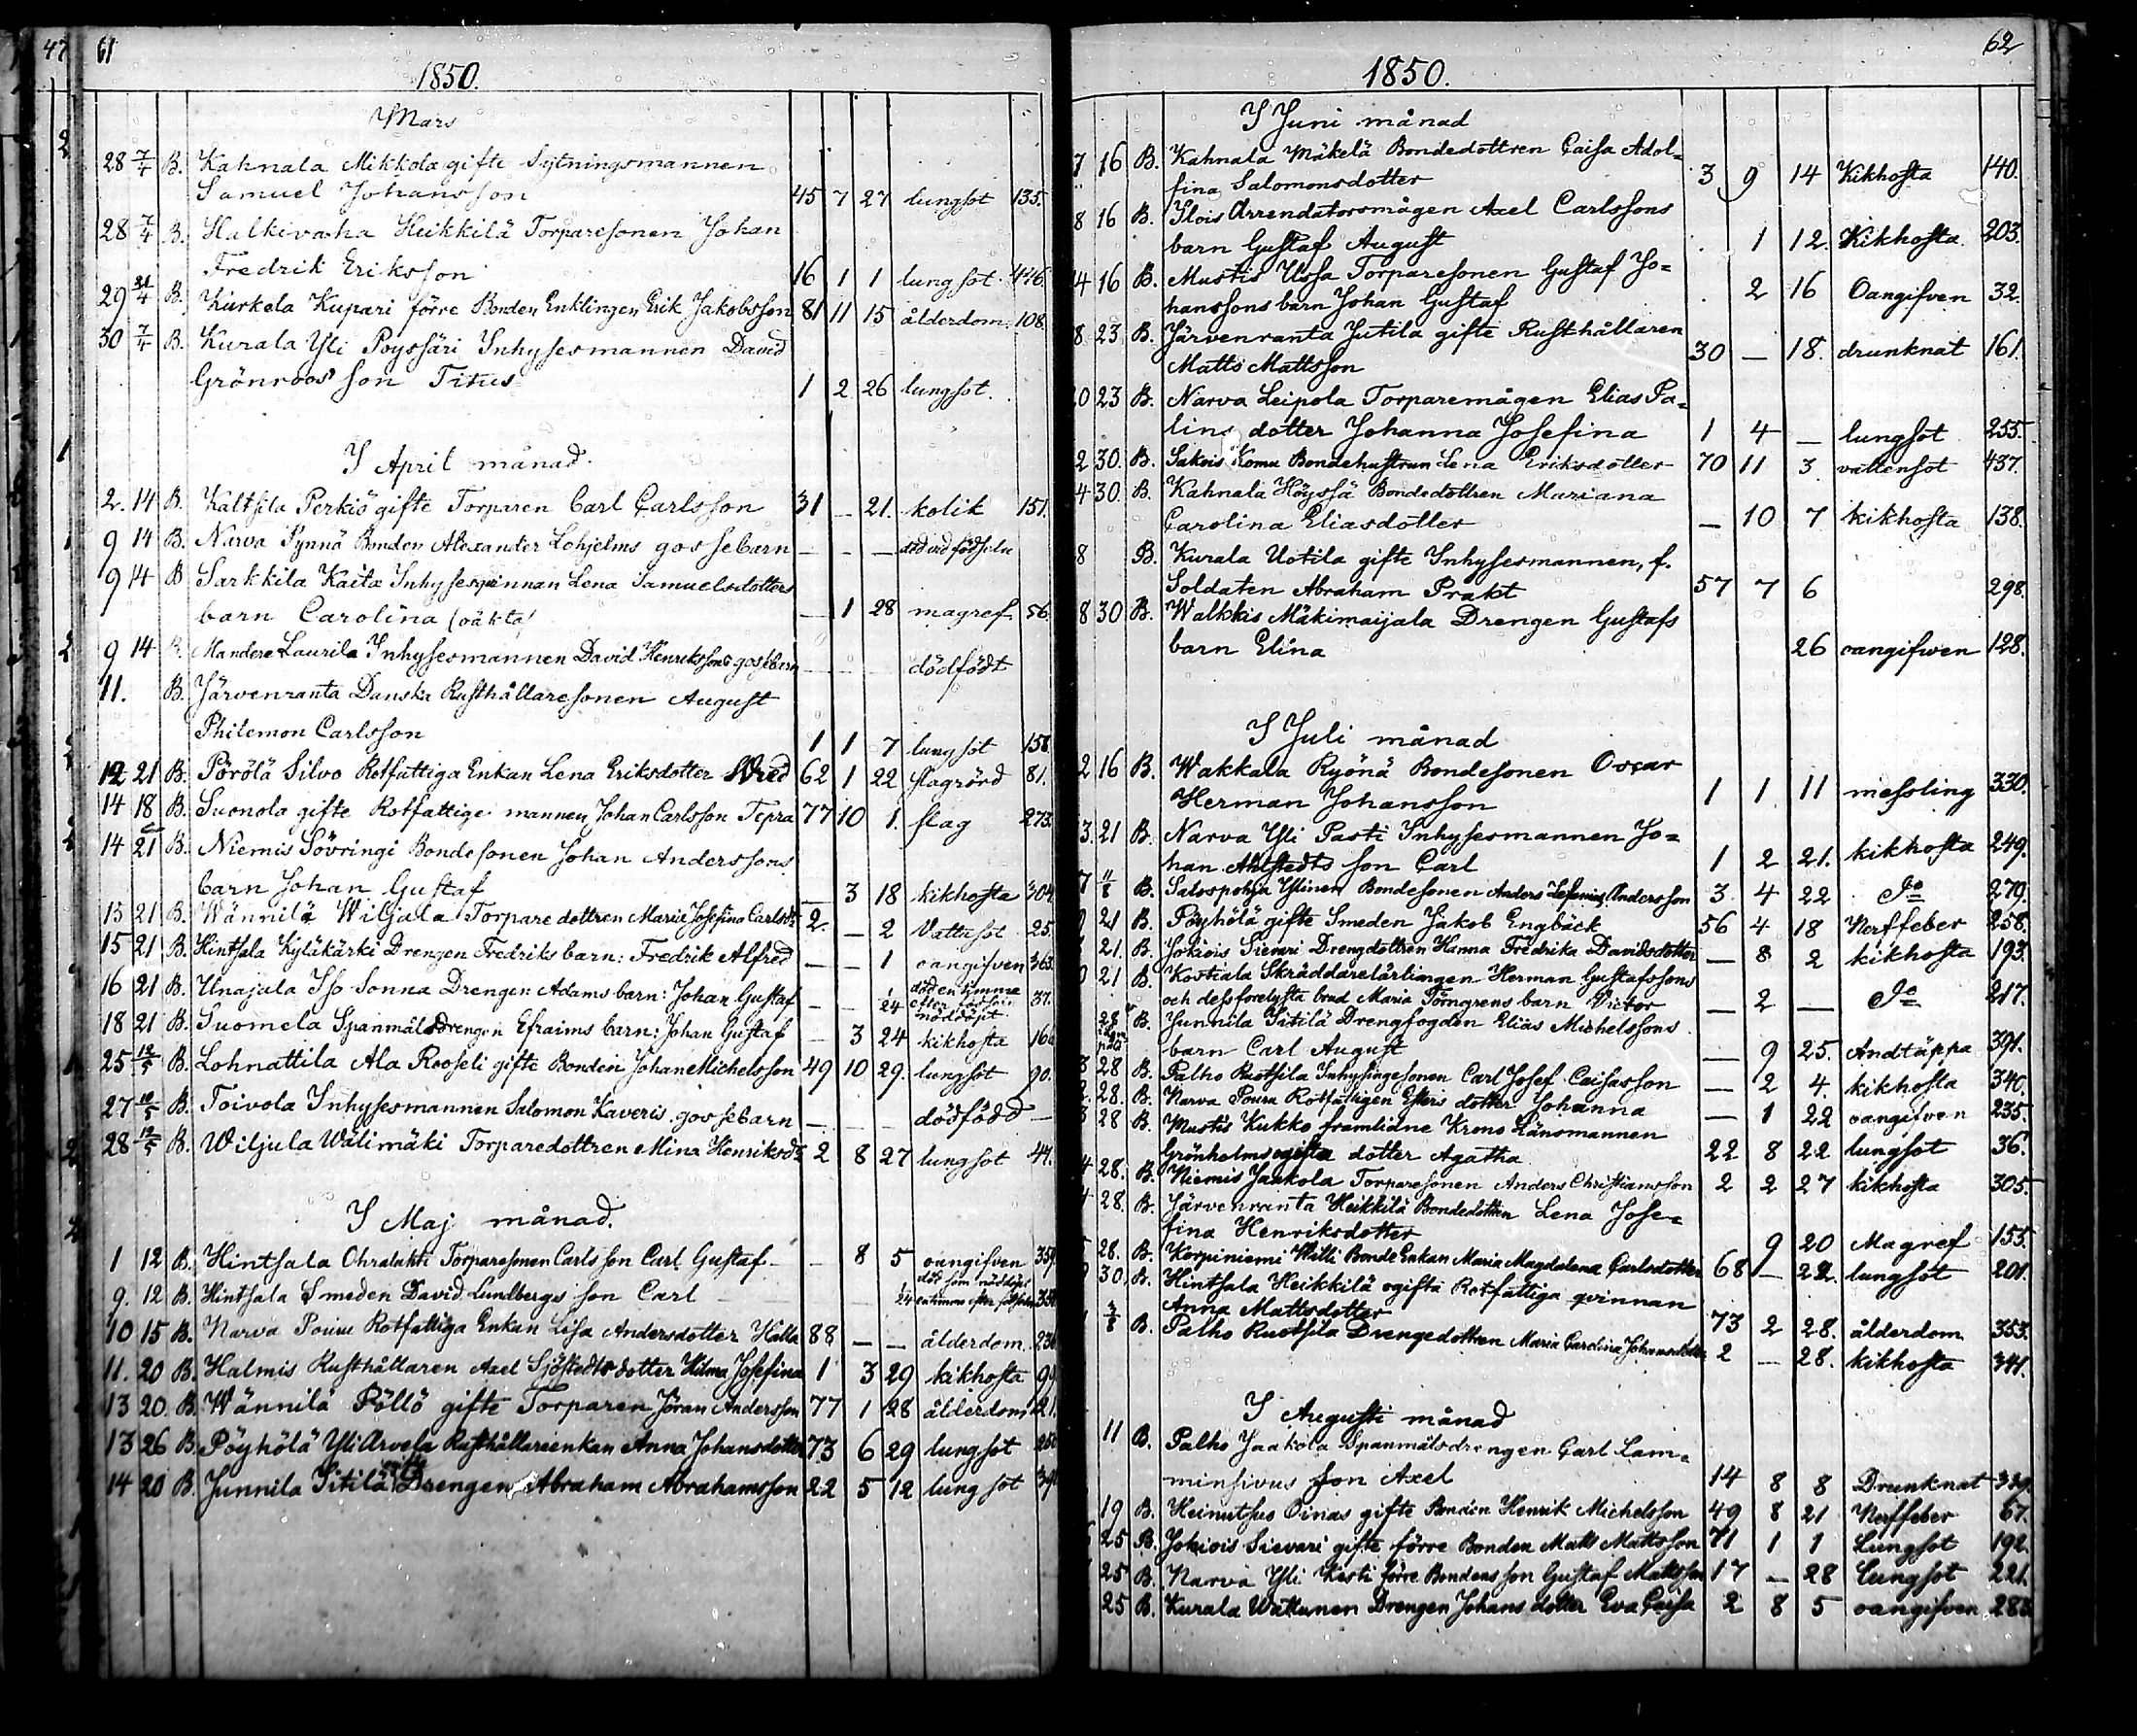 47 61
1850.
Mars
28 7/4 B. Kahnala Mikkola gifte Sytningsmannen
Samuel Johansson 45 7 27 lungsot 135.
28 7/4 B. Halkivaha Heikkilä Torparesonen Johan
Fredrik Eriksson 16 1 1 lungsot. 446.
29 21/4 B. Kurkela Kupari förre Bonden Enklingen Erik Jakobsson 81 11 15 ålderdom. 108
30 7/4 B. Kurala Yli Poyssäri Inhysesmannen David
Grönroos' son Titus 1 2 26 lungsot.
I April månad.
2. 14 B. Kaltsila Perkiö gifte Torparen Carl Carlsson 31 – 21. kolik 151.
9 14 B. Narva Pynnä Bonden Alexander Lohjelms gossebarn – – – död vid födseln
9 14 B Sarkkila Kaita Inhysesqvinnan Lena Samuelsdotters
barn Carolina (oäkta) – 1 28 magref 56
9 14 Mandere Laurila Inhysesmannen David Henrikssons gossebarn – – – dödfödt
11. B. Järvenranta Danska Rusthållaresonen August
Philemon Carlsson 1 1 7 lungsot 158
12 21 B. Pörölä Silvo Rotfattiga Enkan Lena Eriksdotter Wred 62 1 22 slagrörd 81.
14 18 B. Suonola gifte Rotfattige mannen Johan Carlsson Tepra 77 10 1. slag 273.
14 21 B. Niemis Sövringi Bondesonen Johan Anderssons
barn Johan Gustaf 3 18 kikhosta 304
15 21 B. Wännilä Wiljala Torparedottren Maria Josefina Carlsdr 2. – 2 Vattusot 25.
15 21 B. Hintsala Kyläkärki Drengen Fredriks barn: Fredrik Alfred – – 1 oangifven 363.
16 21 B. Unajala Iso Sonna Drengen Adams barn: Johan Gustaf – – 1/24 död en timma efter födseln nöddöpt 37.
18 21 B. Suomela Spanmålsdrengen Efraims barn: Johan Gustaf – 3 24 kikhosta 166
25 12/5 B. Lohnattila Ala Rooseli gifte Bonden Johan Michelsson 49 10 29. lungsot 90.
27 10/5 B. Toivola Inhysesmannen Salomon Kaveris gossebarn – – – dödfödd –
28 12/5 B. Wiljula Wälimäki Torparedottren Mina Henriksdr 2 8 27 lungsot 44.
I Maj månad.
1 12 B. Hintsala Ohralahti Torparesonen Carls son Carl Gustaf – – 8 5 oangifven 359
9. 12 B. Hintsala Smeden David Lundbergs son Carl – – 1/24 död som nöddöpt efter födseln 350
10 15 B. Narva Rotfattiga Enkan Lisa Andersdotter Halla 88 – – ålderdom. 236
11. 20 B. Halmis Rusthållaren Axel Sjöstedts dotter Hilma Josefina 1 3 29 kikhosta 99
13 20. B. Wännilä Pöllö gifte Torparen Jöran Andersson 77 1 28 ålderdom 21.
13 26 B. Pöyhölä Yli Arvela Rusthållareenkan Anna Johansdotter 73 6 29 lungsot 260
14 20 B. Junnila Sitilä Drengen Abraham Abrahamsson 22 5 12 lungsot 391
62
1850.
I Juni månad
7 16 B. Kahnala Mäkelä Bondedottren Caisa Adol=
fina Salomonsdotter 3 9 14 Kikhosta 140.
8 16 B. Ylois Arrendatorsmågen Axel Carlssons
barn Gustaf August 1 12. Kikhosta 203.
4 16 B. Mustis Ussa Torparesonen Gustaf Jo=
hanssons barn Johan Gustaf 2 16 Oangifven 32.
8 23 B. Järvenranta Jutila gifte Rusthållaren
Matts Mattsson 30 – 18. drunknat 161.
0 23 B. Narva Leipola Torparemågen Elias Pa=
lins dotter Johanna Josefina 1 4 – lungsot 255.
2 30. B. Sakois Komu Bondehustrun Lena Eriksdotter 70 11 3. vattensot 437.
4 30. B. Kahnala Höyssä Bondedottren Mariana
Carolina Eliasdotter – 10 7 kikhosta 138.
8 B. Kurala Uotila gifte Inhysesmannen, f.
Soldaten Abraham Prakt 57 7 6 298.
8 30 B. Walkkis Mäkimaijala Drengen Gustafs
barn Elina 26 oangifwen 128.
I Juli månad
2 16 B. Wakkala Ryönä Bondesonen Oscar
Herman Johansson 1 1 11 messling 330.
3. 21 B. Narva Yli Pasti Inhysesmannen Jo=
han Ahlstedts son Carl 1 2 21. kikhosta 249.
7 11/8 B. Salospohja Ylinen Bondesonen Anders Andersson 3 4 22 Do 279.
21 B. Pöyhölä gifte Smeden Jakob Engbäck 56 4 18 Nerffeber 258.
21. B. Jokiois Sievari Drengdottren Hanna Fredrika Davidsdotter – 8 2 kikhosta 193.
0 21 B. Kostiala Skräddarelärlingen Herman Gustafssons
och dess förelysta brud Maria Törngrens barn Victor – 2 – Do 217.
28 B. Junnila Sitilä Drengfogden Elias Michelssons
barn Carl August – 9 25. Andtäppa 391.
3 28 B. Palho Ruotsila Inhysingesonen Carl Josef Caisasson – 2 4. kikhosta 340.
2. 28. B. Narva Rotfattigen Esters dotter Johanna – 1 22 oangifven 235.
3 28 B. Mustis Kukko framlidne Krono Länsmannen
Grönholms ogifta dotter Agatha 22 8 22 lungsot 36.
4 28. B. Niemis Jaakola Torparesonen Anders Christiansson 2 2 27 kikhosta 305.
4 28. B. Järvenranta Heikkilä Bondedottren Lena Jose=
fina Henriksdotter 9 20 Magref 155.
28. B. Korpiniemi Willi Bonde Enkan Maria Magdalena Carlsdotter 68 – 22. lungsot 201.
30. B. Hintsala Heikkilä ogifta Rotfattiga qvinnan
Anna Mattsdotter 73 2 28. ålderdom 353.
3/8 B. Palho Ruotsila Drengedottren Maria Carolina Johansdotter 2 – 28. kikhosta 341.
I Augusti månad
11 B. Palho Jaakola Spanmålsdrengen Carl Lam=
minsivus son Axel 14 8 8 Drunknat 329.
19 B. Heinutsuo Oinas gifte Bonden Henrik Michelsson 49 8 21 Nerffeber 67.
25 B. Jokiois Sievari gifte förre Bonden Matts Mattsson 71 1 1 Lungsot 192.
25 B. Narva Yli Kesti förre Bondens son Gustaf Mattsson 17 – 28 Lungsot 221.
25 B. Kurala Wattunen Drengen Johans dotter Eva Caisa 2 8 5 oangifven 285